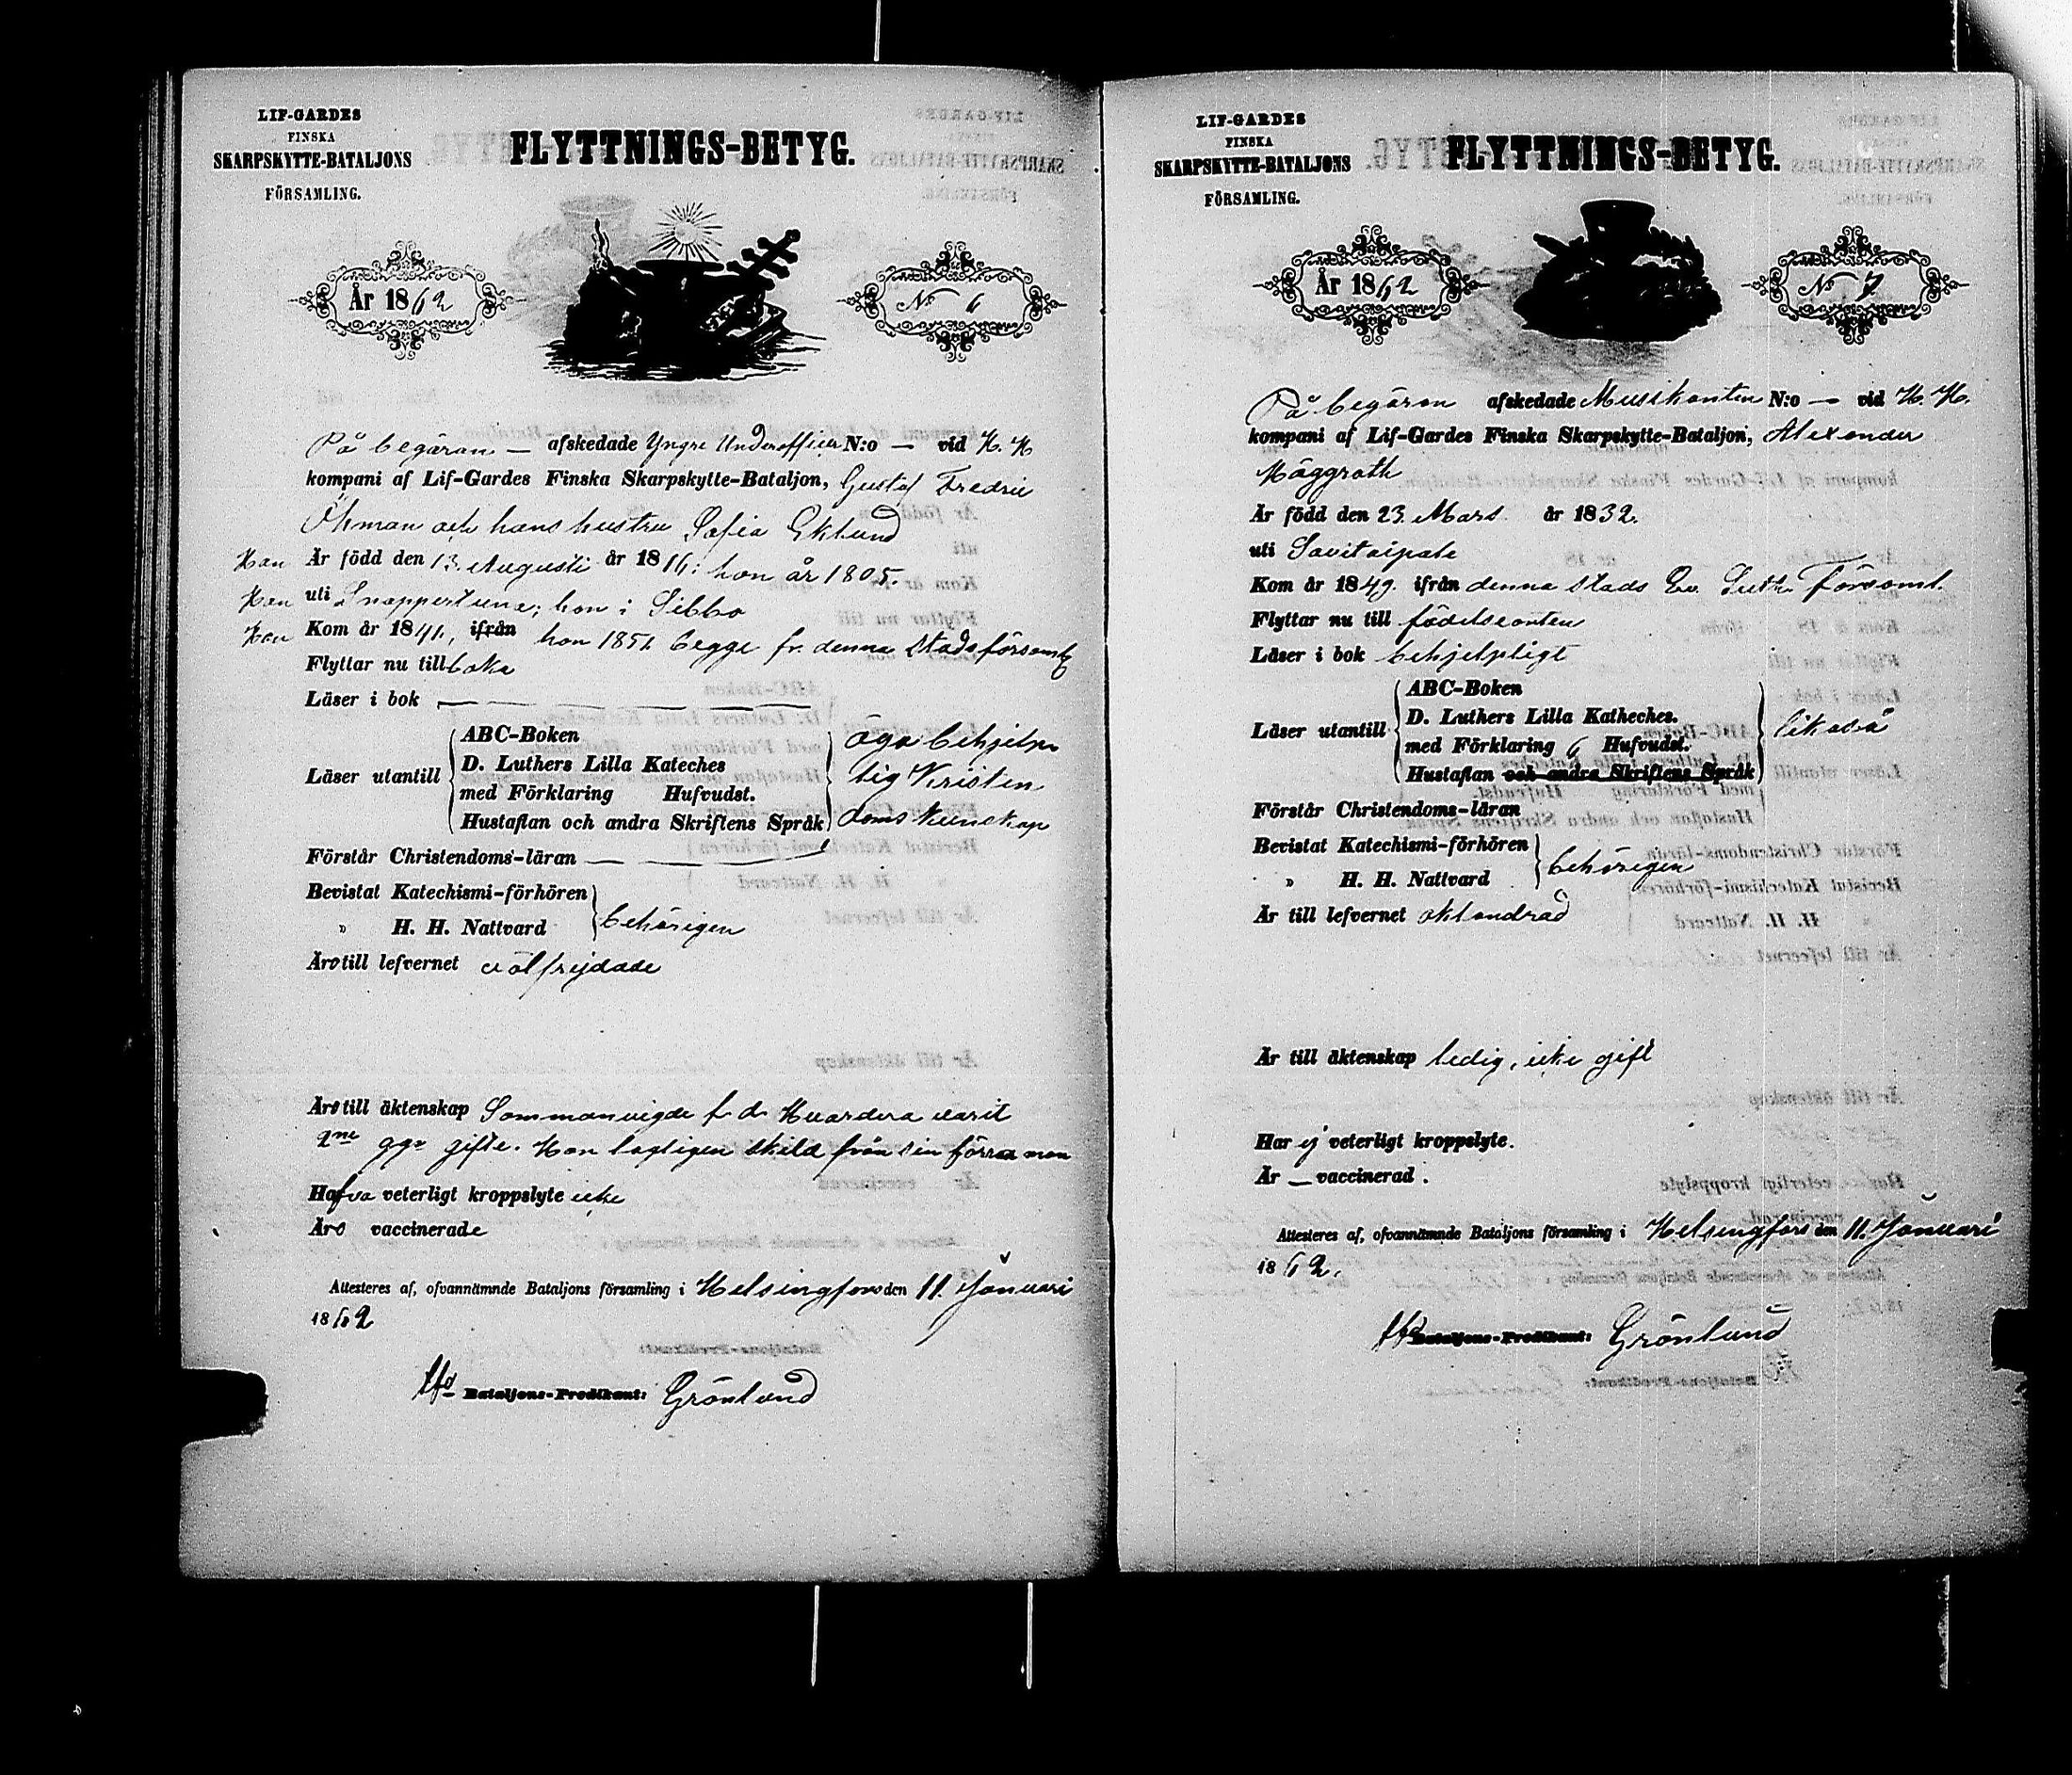 LIF-GARDES
FINSKA
SKARPSKYTTE-BATALJONS
FÖRSAMLING.
FLYTTNINGS-BETYG.
År 1862
No 6
På begäran — afskedade Yngre Underofficer N:o — vid H. K
kompani af Lif-Gardes Finska Skarpskytte-Bataljon, Gustaf Fredric
Öhman och hans hustru Sofia Eklund
Han Är född den 13. Augusti år 1816; hon år 1805.
Han uti Snappertuna; hon i Sibbo
Han Kom år 1841, ifrån hon 1851 begge fr. denna stadsförsamlg
Flyttar nu till baka
Läser i bok
Läser utantill
ABC-Boken
D. Luthers Lilla Kateches
med Förklaring Hufvudst.
Hustaflan och andra Skriftens Språk
äga behjelp
lig Kristen
doms kunskap
Förstår Christendoms-läran
Bevistat Katechismi-förhören
„ H. H. Nattvard
behörigen
Äro till lefvernet välfrejdade
Äro till äktenskap Sammanvigde f. d. Hvardera varit
2ne ggr gifte. Hon lagligen skild från sin förra man
Hafva veterligt kroppslyte icke
Äro vaccinerade
Attesteras af, ofvannämnde Bataljons församling i Helsingfors den 11. Januari
1862
Bataljons-Predikant: Grönlund
LIF-GARDES
FINSKA
SKARPSKYTTE-BATALJONS
FÖRSAMLING.
FLYTTNINGS-BETYG.
År 1862
No 7
På begäran afskedade Musikanten N:o — vid H. K.
kompani af Lif-Gardes Finska Skarpskytte-Bataljon, Alexander
Häggroth
Är född den 23. Mars år 1832.
uti Savitaipale
Kom år 1849. ifrån denna stads Ev. Luth. Församl.
Flyttar nu till födelseorten
Läser i bok behjelpligt
Läser utantill
ABC-Boken
D. Luthers Lilla Katheches.
med Förklaring 6 Hufvudst.
Hustaflan och andra Skriftens Språk
likaså
Förstår Christendoms-läran
Bevistat Katechismi-förhören
„ H. H. Nattvard
behörigen
Är till lefvernet oklandrad
Är till äktenskap ledig, icke gift
Har ej veterligt kroppslyte.
Är — vaccinerad.
Attesteres af, ofvannämnde Bataljons församling i Helsingfors den 11. Januari
1862.
Bataljons-Predikant: Grönlund